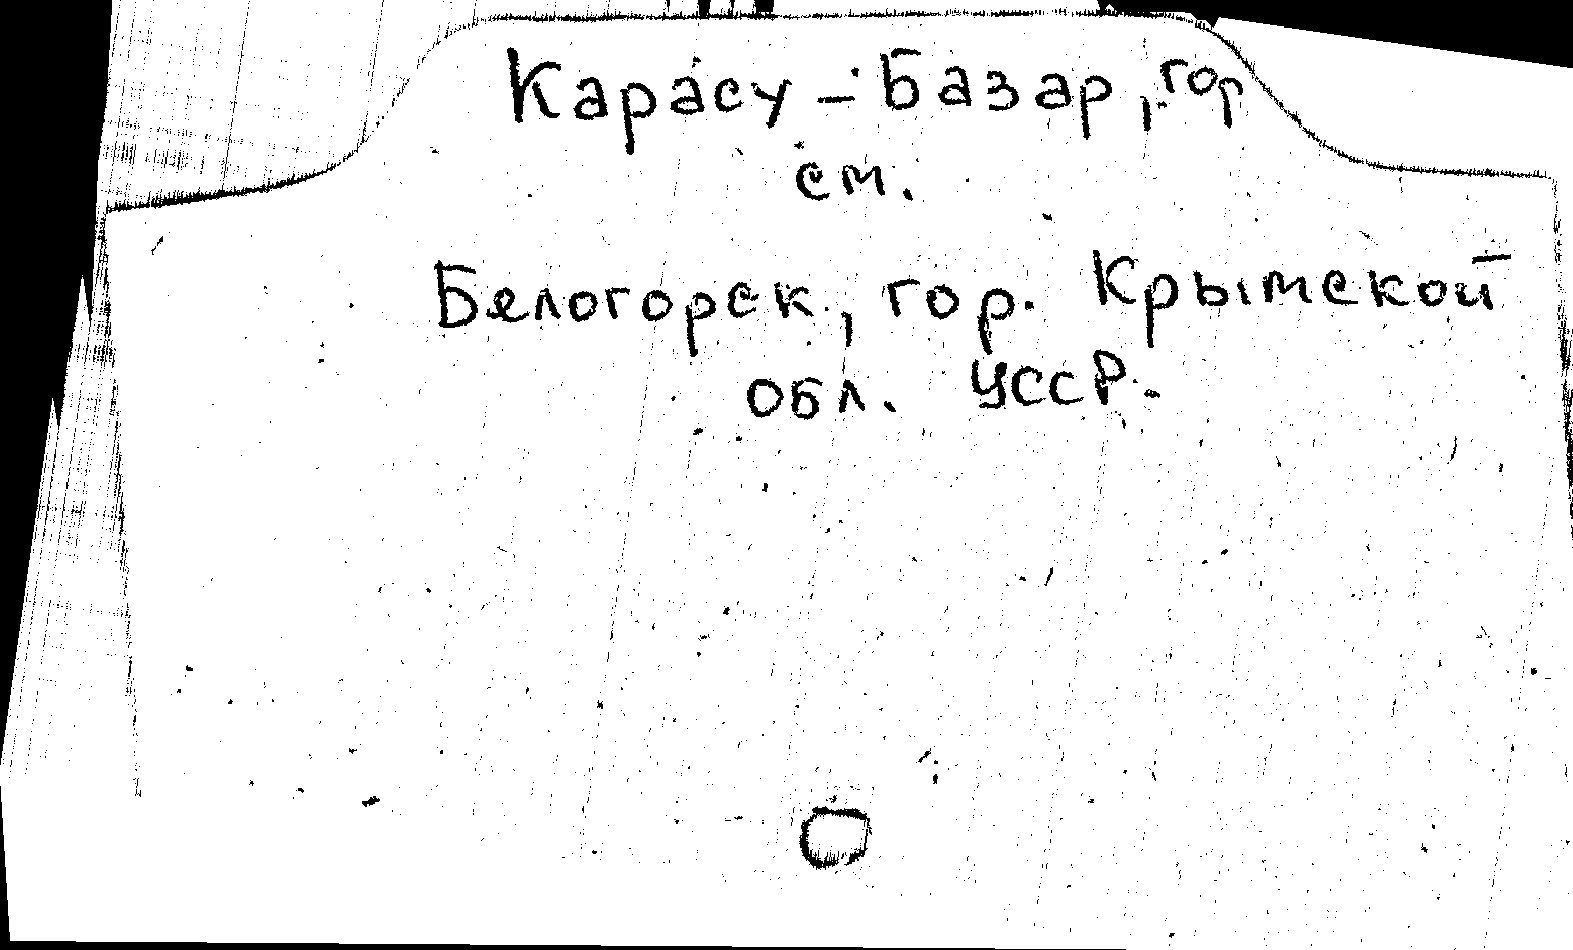 Карасу - Базар, гор
см.
Белогорск, гор. Крымской
обл. УССР.